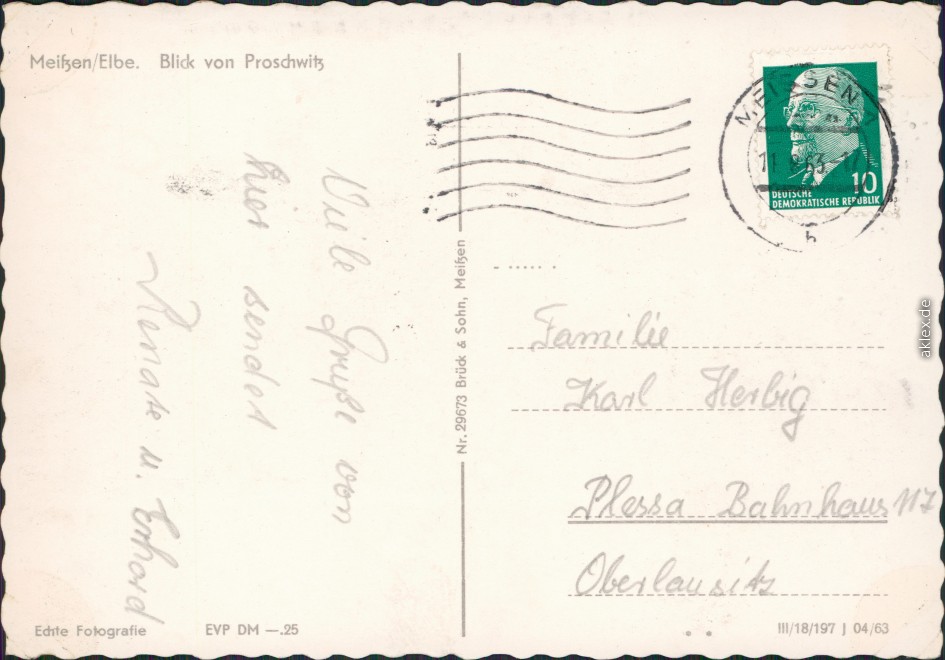 Meißen/Elbe. Blick von Proschwitz
Viele Grüße von
hier sendet
Renate u. Erhard
Echte Fotografie
EVP DM —.25
Nr. 29673 Brück & Sohn, Meißen
MEISSEN
63
10
DEUTSCHE
DEMOKRATISCHE REPUBLIK
h
Familie
Karl Herbig
Plessa Bahnhaus 117
Oberlausitz
III/18/197 J 04/63
aklex.de